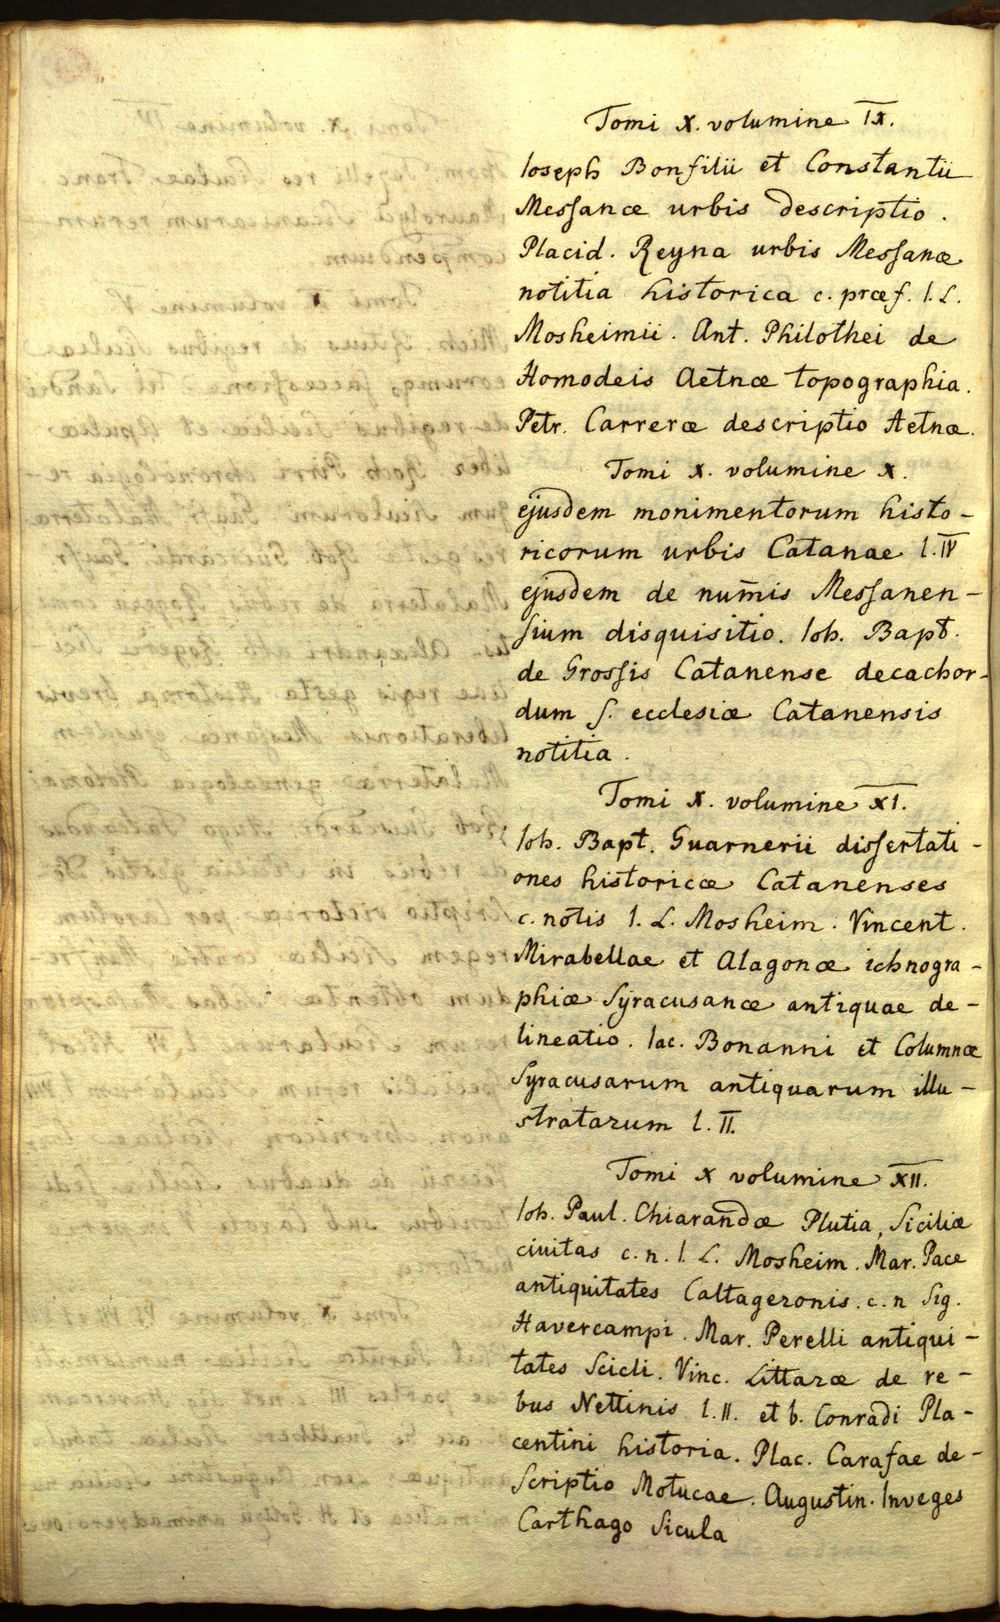 Tomi X. volumine IX.
Ioseph Bonfilii et Constantii
Messanæ urbis descriptio.
Placid. Reyna urbis Messanæ
notitia historica c. præf. I. L.
Mosheimii. Ant. Philothei de
Homodeis Aetnæ topographia.
Petr. Carreræ descriptio Aetnæ.
Tomi X. volumine X.
ejusdem monimentorum histo-
ricorum urbis Catanae l. IV
ejusdem de num̄is Messanen-
sium disquisitio. Ioh. Bapt.
de Grossis Catanense decachor-
dum s. ecclesiæ Catanensis
notitia.
Tomi X. volumine XI.
Ioh. Bapt. Guarnerii dissertati-
ones historicæ Catanenses
c. notis I. L. Mosheim. Vincent.
Mirabellae et Alagonæ ichnogra-
phiæ Syracusanæ antiquae de-
lineatio. Iac. Bonanni et Columnæ
Syracusarum antiquarum illu-
stratarum l. II.
Tomi X volumine XII.
Ioh. Paul. Chiarandæ Plutia, Siciliæ
civitas c. n. I. L. Mosheim. Mar. Pace
antiquitates Caltageronis. c. n Sig.
Havercampi. Mar. Perelli antiqui-
tates Scicli. Vinc. Littaræ de re-
bus Nettinis l. II. et b. Conradi Pla-
centini historia. Plac. Carafae de-
scriptio Motucae. Augustin. Inveges
Carthago Sicula